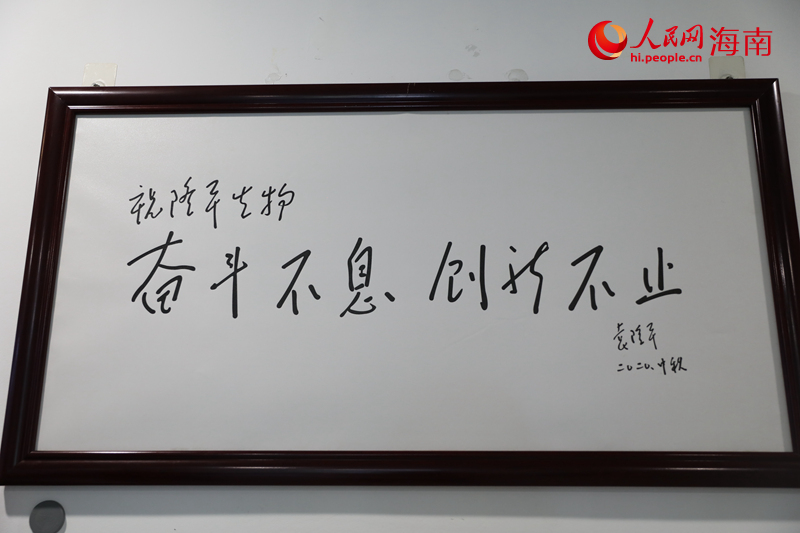 人民网 海南
hi.people.cn
祝隆平生物
奋斗不息 创新不止
袁隆平
二〇二〇.中秋